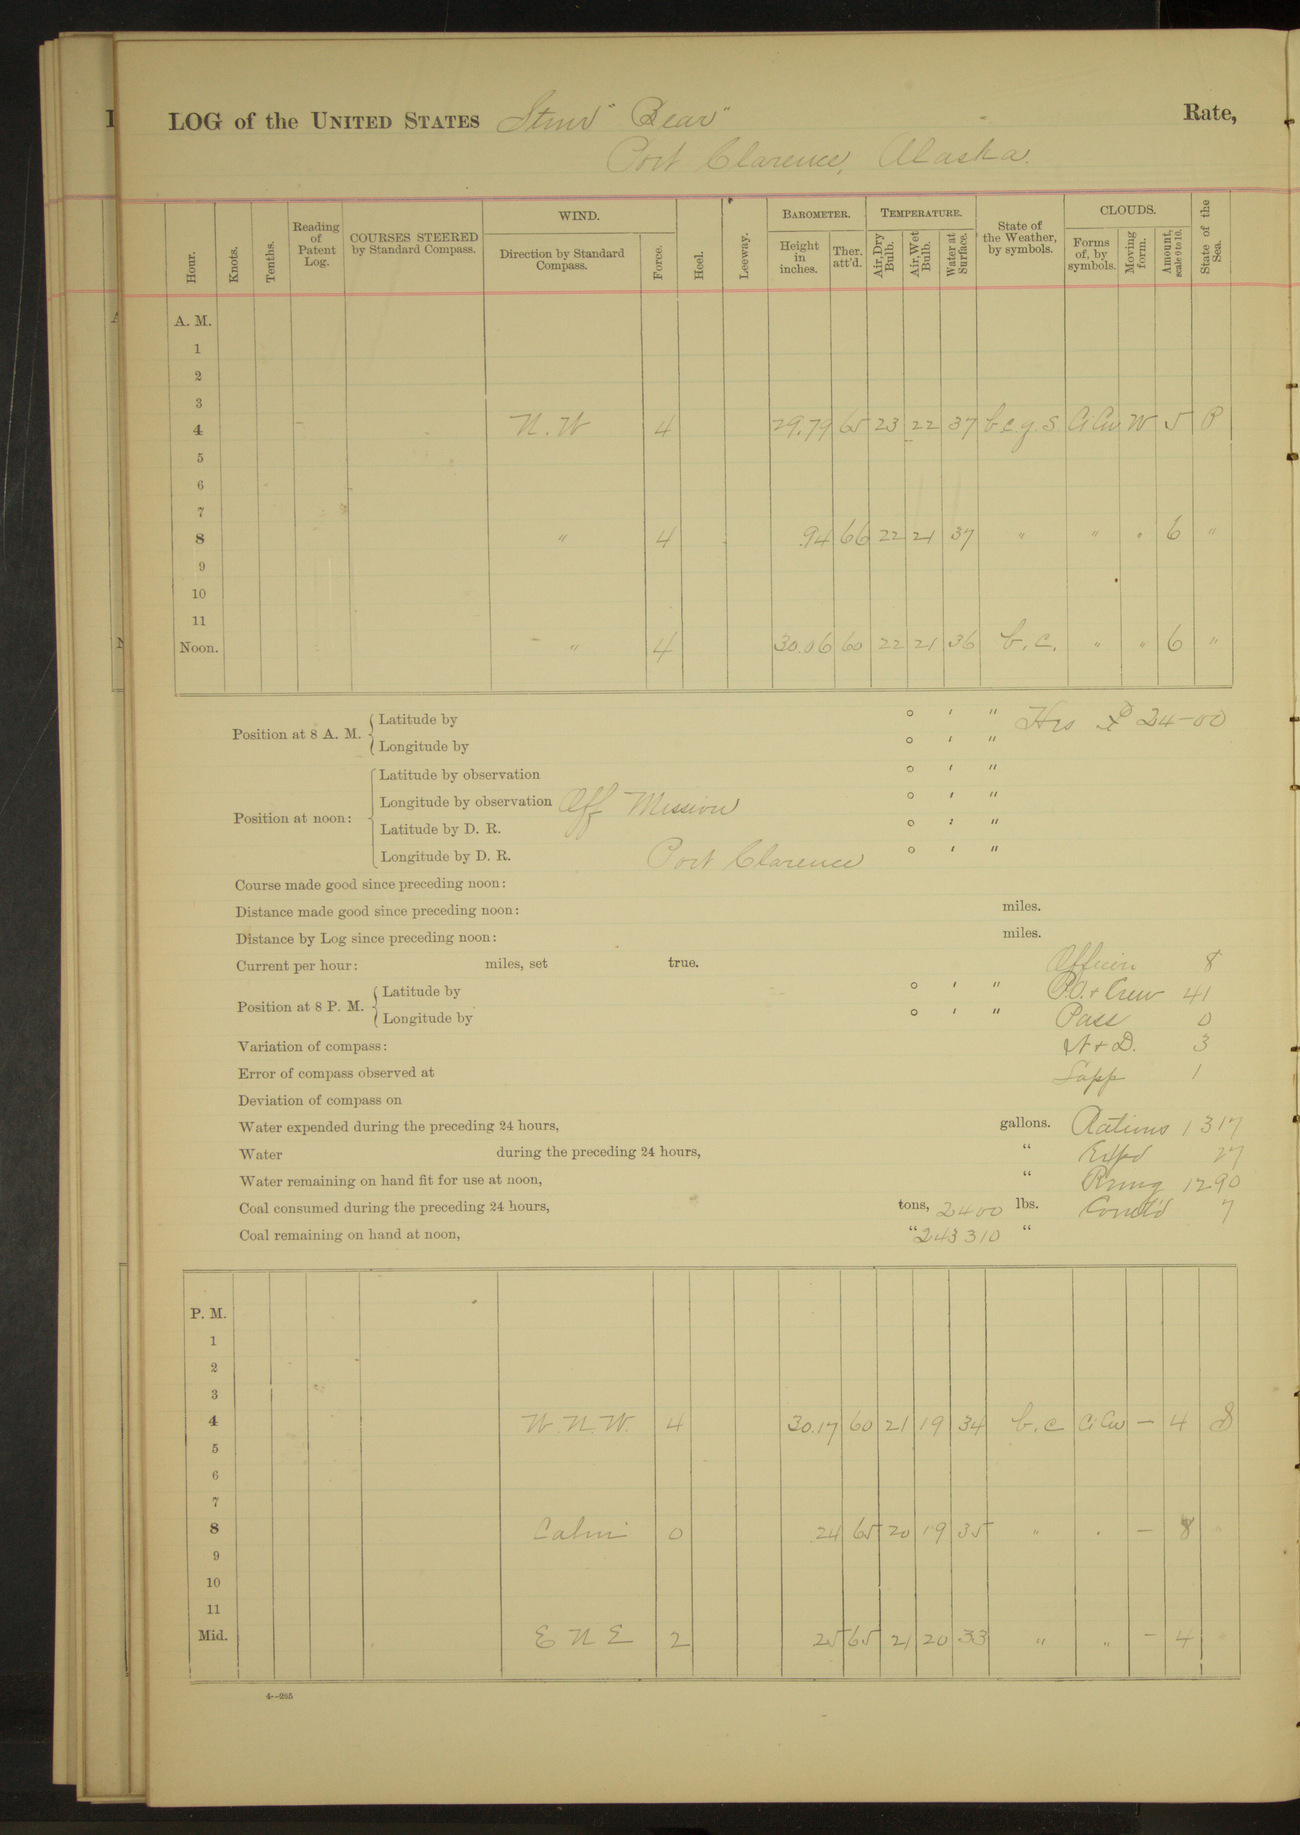 LOG of the UNITED STATES Stmr "Bear" Rate,
Port Clarence, Alaska.
Hour. Knots. Tenths. Reading of Patent Log. COURSES STEERED by Standard Compass. WIND. Direction by Standard Compass. Force. Heel. Leeway. BAROMETER. Height in inches. Ther. att'd. TEMPERATURE. Air, Dry Bulb. Air, Wet Bulb. Water at Surface. State of the Weather, by symbols. CLOUDS. Forms of, by symbols. Moving form. Amount, scale 0 to 10. State of the Sea.
A. M.
1
2
3
4 N.W 4 29.79 65 23 22 37 b.c.q.s. Ci Cu W 5 P
5
6
7
8 " 4 .94 66 22 21 37 " " " 6 "
9
10
11
Noon. " 4 30.06 60 22 21 36 b.c. " " 6 "
Position at 8 A. M. Latitude by ° ′ ″ Hrs P 24-00
Longitude by ° ′ ″
Position at noon: Latitude by observation ° ′ ″
Longitude by observation Off Mission ° ′ ″
Latitude by D. R. ° ′ ″
Longitude by D. R. Port Clarence ° ′ ″
Course made good since preceding noon:
Distance made good since preceding noon: miles.
Distance by Log since preceding noon: miles.
Current per hour: miles, set true. Officers 8
Position at 8 P. M. Latitude by ° ′ ″ P.O. + Crew 41
Longitude by ° ′ ″ Pass 0
Variation of compass: N + D. 3
Error of compass observed at Supp 1
Deviation of compass on
Water expended during the preceding 24 hours, gallons. Rations 1317
Water during the preceding 24 hours, " Expd 27
Water remaining on hand fit for use at noon, " Rmng 1290
Coal consumed during the preceding 24 hours, tons, 2400 lbs. Com'td 7
Coal remaining on hand at noon, " 243310 "
P. M.
1
2
3
4 W.N.W. 4 30.17 60 21 19 34 b.c Ci Cu — 4 S
5
6
7
8 Calm 0 .24 65 20 19 35 " " — 8
9
10
11
Mid. E N E 2 25 65 21 20 33 " " — 4
4--205